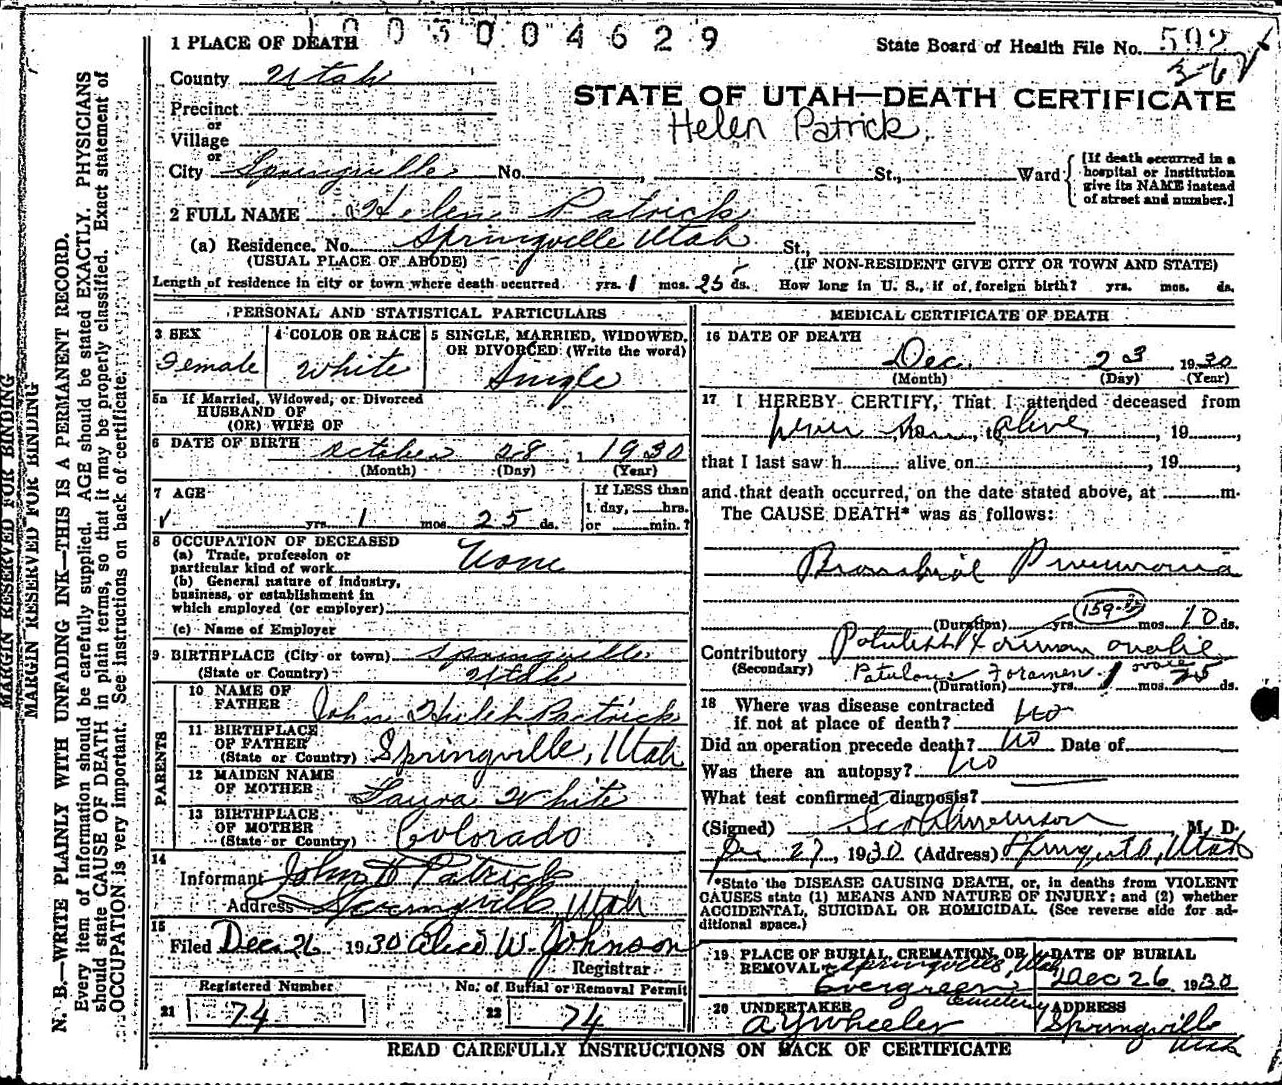 1003004629
1 PLACE OF DEATH
State Board of Health File No. 592
3-6
County Utah
STATE OF UTAH—DEATH CERTIFICATE
Precinct
Helen Patrick.
or
Village
or
City Springville No. , St., Ward
[If death occurred in a
hospital or institution
give its NAME instead
of street and number.]
2 FULL NAME Helen Patrick
(a) Residence. No. Springville Utah St.
(USUAL PLACE OF ABODE) (IF NON-RESIDENT GIVE CITY OR TOWN AND STATE)
Length of residence in city or town where death occurred. yrs. 1 mos. 25 ds. How long in U. S., if of foreign birth? yrs. mos. ds.
PERSONAL AND STATISTICAL PARTICULARS
3 SEX
Female
4 COLOR OR RACE
White
5 SINGLE, MARRIED, WIDOWED,
OR DIVORCED (Write the word)
Single
5a If Married, Widowed, or Divorced
HUSBAND OF
(OR) WIFE OF
6 DATE OF BIRTH October 28, 1930
(Month) (Day) (Year)
7 AGE
yrs. 1 mos. 25 ds.
If LESS than
1 day, hrs.
or min.?
8 OCCUPATION OF DECEASED
(a) Trade, profession or
particular kind of work None
(b) General nature of industry,
business, or establishment in
which employed (or employer)
(c) Name of Employer
9 BIRTHPLACE (City or town) Springville
(State or Country) Utah
PARENTS
10 NAME OF
FATHER John Patrick
11 BIRTHPLACE
OF FATHER
(State or Country) Springville, Utah
12 MAIDEN NAME
OF MOTHER Laura White
13 BIRTHPLACE
OF MOTHER
(State or Country) Colorado
14
Informant John H Patrick
Address Springville, Utah
15
Filed Dec 26 1930 Alice W. Johnson
Registrar
Registered Number
21 74
No. of Burial or Removal Permit
22 74
MEDICAL CERTIFICATE OF DEATH
16 DATE OF DEATH
Dec. 23 1930
(Month) (Day) (Year)
17 I HEREBY CERTIFY, That I attended deceased from
never saw, t alive, 19
that I last saw h alive on , 19 ,
and that death occurred, on the date stated above, at m.
The CAUSE DEATH* was as follows:
Bronchial Pneumonia
(Duration) yrs. mos. 10 ds.
Contributory
(Secondary) Patulous Foramen ovale
(Duration) yrs. 1 mos. 25 ds.
18 Where was disease contracted
if not at place of death? no
Did an operation precede death? no Date of
Was there an autopsy? no
What test confirmed diagnosis?
(Signed) M. D.
Dec 27, 1930 (Address) Springville, Utah
*State the DISEASE CAUSING DEATH, or, in deaths from VIOLENT
CAUSES state (1) MEANS AND NATURE OF INJURY; and (2) whether
ACCIDENTAL, SUICIDAL OR HOMICIDAL. (See reverse side for ad-
ditional space.)
19 PLACE OF BURIAL, CREMATION, OR
REMOVAL Springville, Utah
Evergreen Cemetery
DATE OF BURIAL
Dec 26 1930
20 UNDERTAKER
A Y Wheeler
ADDRESS
Springville
Utah
READ CAREFULLY INSTRUCTIONS ON BACK OF CERTIFICATE
MARGIN RESERVED FOR BINDING
MARGIN RESERVED FOR BINDING
N. B.—WRITE PLAINLY WITH UNFADING INK—THIS IS A PERMANENT RECORD.
Every item of information should be carefully supplied. AGE should be stated EXACTLY. PHYSICIANS
should state CAUSE OF DEATH in plain terms, so that it may be properly classified. Exact statement of
OCCUPATION is very important. See instructions on back of certificate.